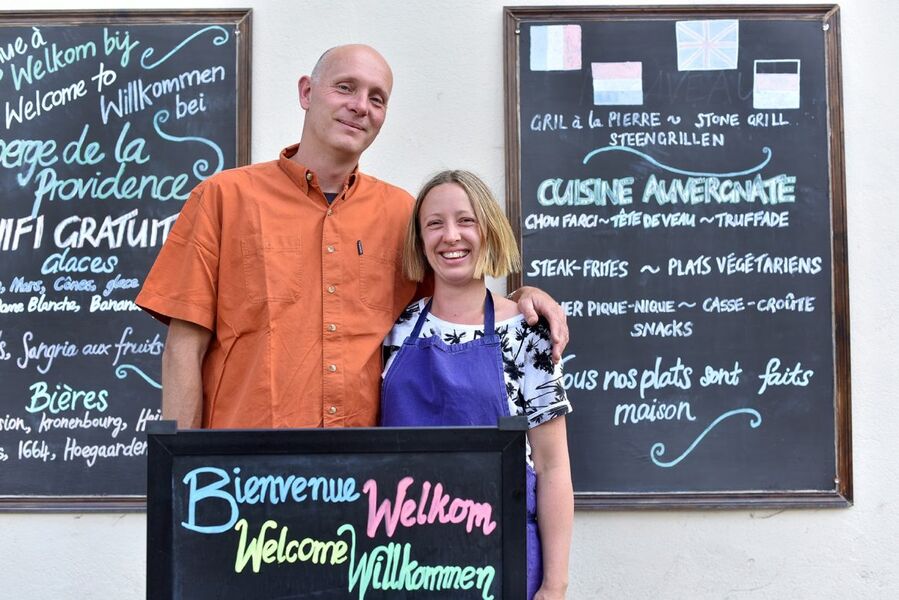 à
Welkom bij
Welcome to
Willkommen
bei
de la
Providence
GRATUIT
Glaces
Mars, Cônes, glace
Dame Blanche, Banana
Sangria aux fruits
Bières
kronenbourg,
1664, Hoegaarden
GRIL à la PIERRE ~ STONE GRILL
STEENGRILLEN
CUISINE AUVERGNATE
CHOU FARCI ~ TÊTE DE VEAU ~ TRUFFADE
STEAK-FRITES ~ PLATS VÉGÉTARIENS
PIQUE-NIQUE ~ CASSE-CROÛTE
SNACKS
nos plats sont faits
maison
Bienvenue Welkom
Welcome Willkommen